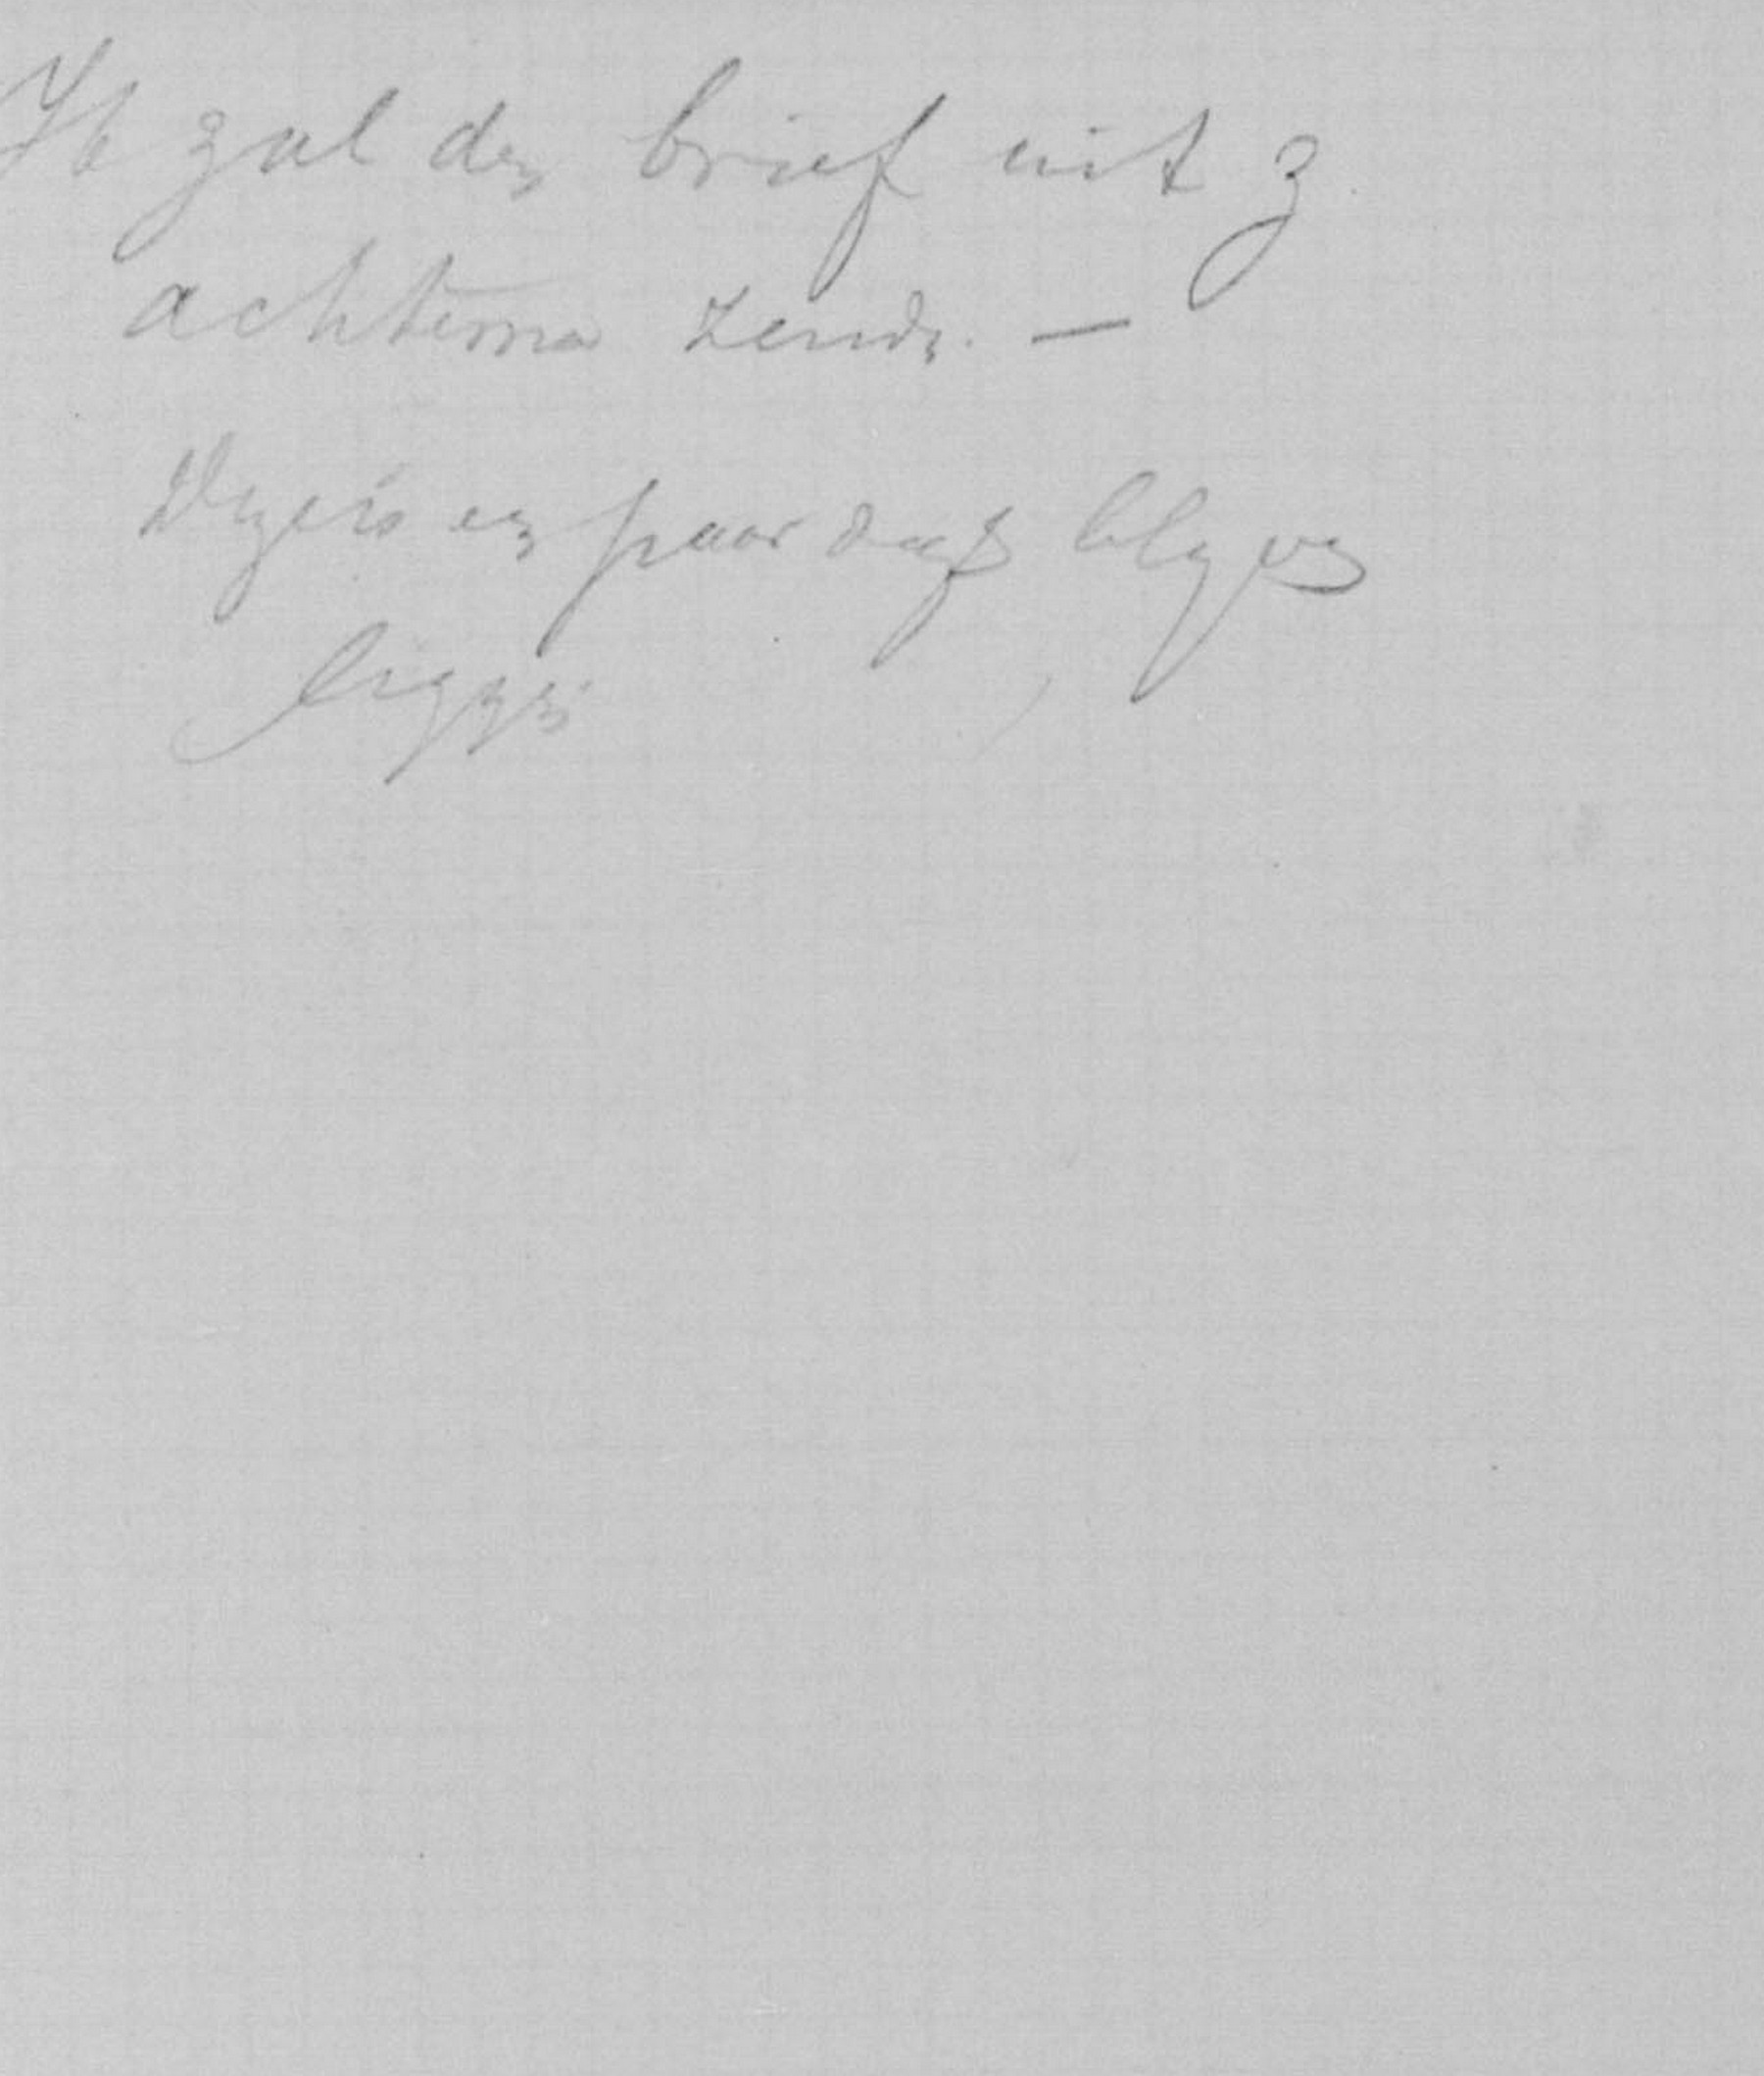 Ik zal den brief uit Z.
achterna zenden. —
Deze is een paar dag blijven
liggen